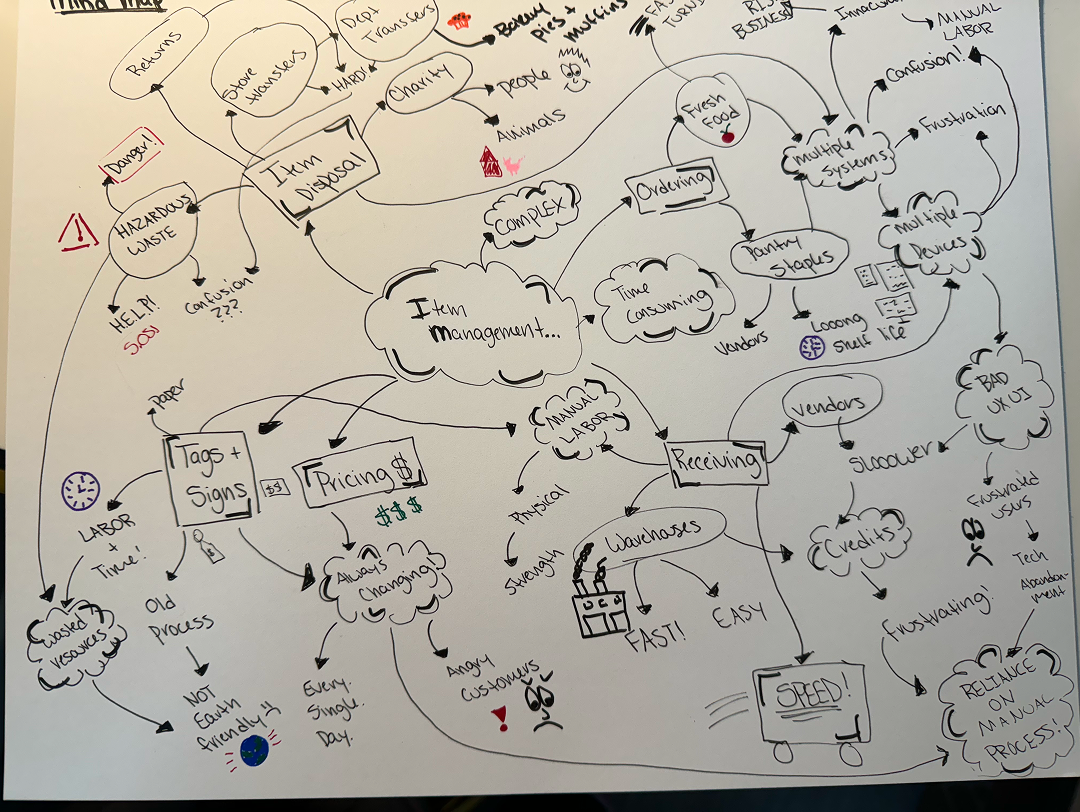 Mind Map
Returns
Store
transfers
Dept
Transfers
HARD!
Bakery
pies +
muffins
Charity
people
Animals
Item
Disposal
Danger!
!
HAZARDOUS
WASTE
H.E.L.P!
S.O.S!
Confusion
???
COMPLEX
Item
management...
Time
Consuming
Ordering
Fresh
Food
FAST
TURNS
Pantry
Staples
Vendors
Looong
Shelf life
RISKY
BUSINESS
MANUAL
LABOR
Confusion!
Frustration
Multiple
Systems
Multiple
Devices
BAD
UX UI
Frustrated
users
Tech
Abandon-
ment
RELIANCE
ON
MANUAL
PROCESS!
Paper
Tags +
Signs
$$
$
LABOR
+
Time!
Wasted
resources
Old
Process
NOT
Earth
friendly
Pricing $
$$$
Always
Changing!
Every.
Single.
Day.
Angry
Customers
!
MANUAL
LABOR
Physical
Strength
Receiving
Vendors
Slooower
Credits
frustrating!
Warehouses
FAST!
EASY
SPEED!